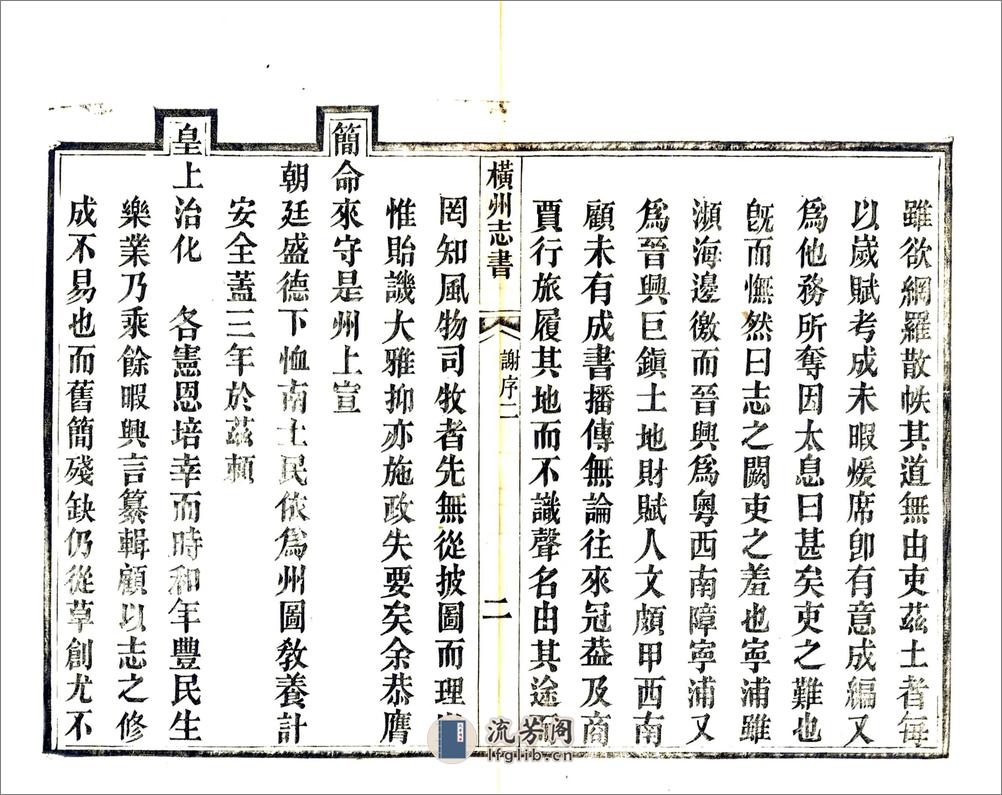 雖欲綱羅散帙其道無由吏茲土者每
以歲賦考成未暇煖席卽有意成編又
爲他務所奪因太息曰甚矣吏之難也
旣而憮然曰志之闕吏之羞也寧浦雖
瀕海邊徼而晉興爲粵西南障寧浦又
爲晉興巨鎭士地財賦人文頗甲西南
顧未有成書播傳無論往來冠葢及商
賈行旅履其地而不識聲名由其途
橫州志書
謝序二
二
罔知風物司牧者先無從披圖而理
惟貽譏大雅抑亦施政失要矣余恭膺
簡命來守是州上宣
朝廷盛德下恤南土民依爲州圖敎養計
安全蓋三年於茲頼
皇上治化 各憲恩培幸而時和年豐民生
樂業乃乘餘暇興言纂輯顧以志之修
成不易也而舊簡殘缺仍從草創尤不
流芳阁
lfglib.cn